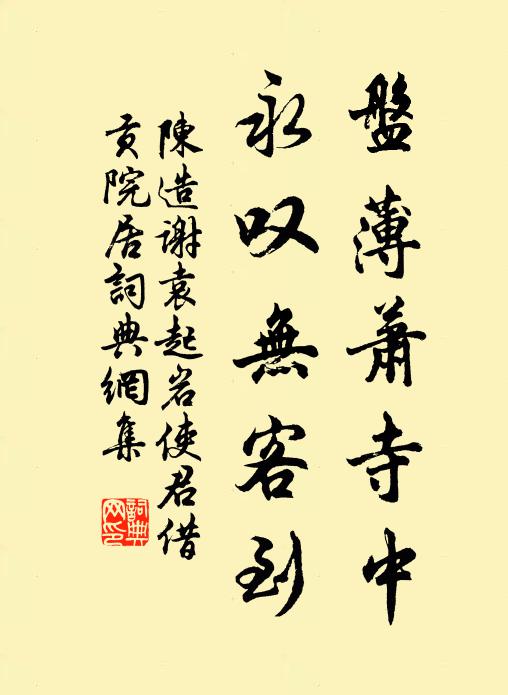 盤薄蕭寺中
永叹無客到
陳造謝袁起岩使君借
貢院居詞典網集
詞典
网印